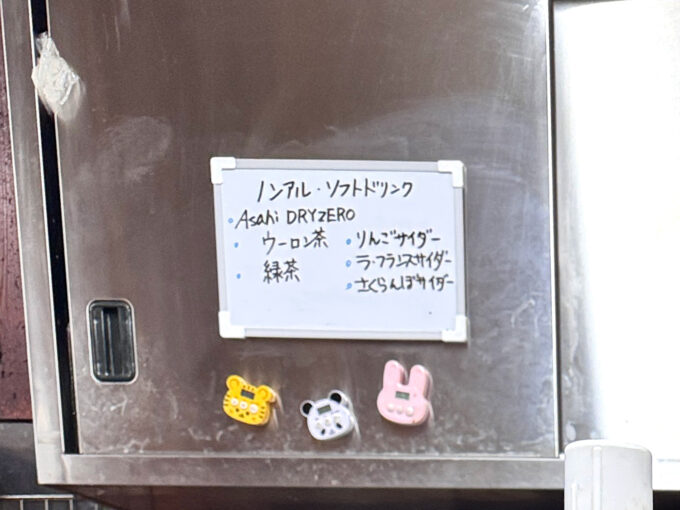 ノンアル・ソフトドリンク
・Asahi DRYZERO
・ウーロン茶
・緑茶
・りんごサイダー
・ラ・フランスサイダー
・さくらんぼサイダー